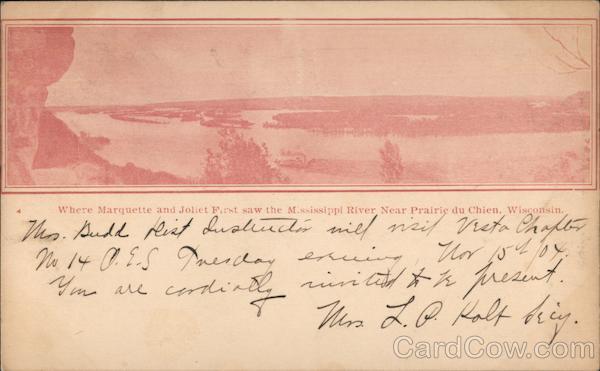 4 Where Marquette and Joliet First saw the Mississippi River Near Prairie du Chien, Wisconsin.
Mrs. Budd Dist Instructor will visit Vesta Chapter
No. 14 O.E.S Tuesday evening, Nov 15th 04.
You are cordially invited to be present.
Mrs. L. P. Holt Secy.
CardCow.com®